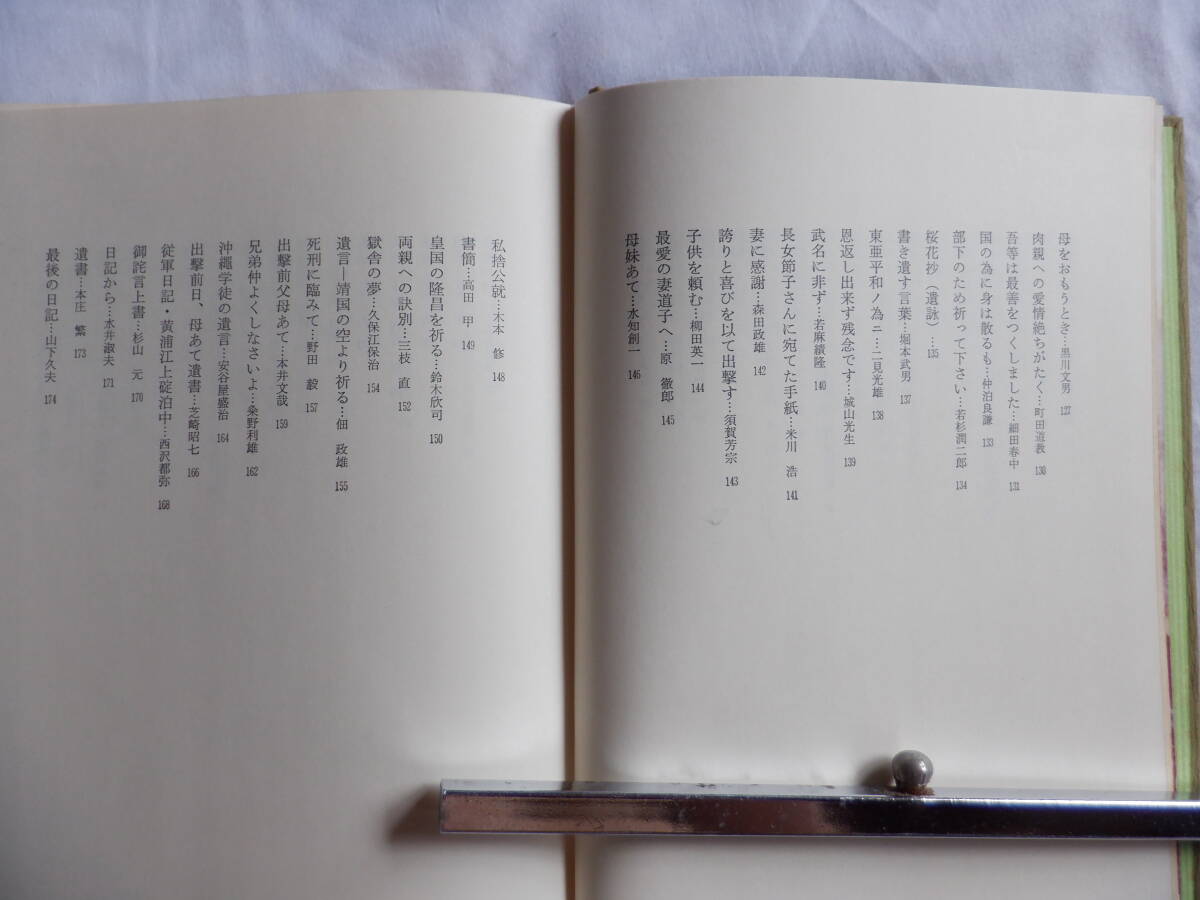 母をおもうとき…黒川文男 127
肉親への愛情絶ちがたく…町田道教 130
吾等は最善をつくしました…細田春中 131
国の為に身は散るも…仲泊良謙 133
部下のため祈って下さい…若杉潤二郎 134
桜花抄（遺詠）… 135
書き遺す言葉…堀本武男 137
東亜平和ノ為ニ…二見光雄 138
恩返し出来ず残念です…城山光生 139
武名に非ず…若麻績隆 140
長女節子さんに宛てた手紙…米川 浩 141
妻に感謝…森田政雄 142
誇りと喜びを以て出撃す…須賀芳宗 143
子供を頼む…柳田英一 144
最愛の妻道子へ…原 徹郎 145
母妹あて…水知創一 146
私捨公就…木本 修 148
書簡…高田 甲 149
皇国の隆昌を祈る…鈴木欣司 150
両親への訣別…三枝 直 152
獄舎の夢…久保江保治 154
遺言―靖国の空より祈る…佃 政雄 155
死刑に臨みて…野田 毅 157
出撃前父母あて…本井文哉 159
兄弟仲よくしなさいよ…粂野利雄 162
沖縄学徒の遺言…安谷屋盛治 164
出撃前日、母あて遺書…芝崎昭七 166
従軍日記・黄浦江上碇泊中…西沢都弥 168
御詫言上書…杉山 元 170
日記から…水井淑夫 171
遺書…本庄 繁 173
最後の日記…山下久夫 174